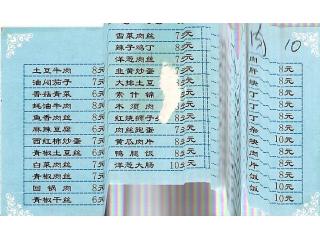 土豆牛肉 8元
油闷茄子 7元
香菇青菜 6元
蚝油牛肉 8元
鱼香肉丝 7元
麻辣豆腐 6元
西红柿炒蛋 7元
青椒土豆丝 6元
白菜肉丝 7元
青椒肉丝 7元
回锅肉 8元
青椒干丝 6元
雪菜肉丝 7元
辣子鸡丁 8元
洋葱肉丝 7元
韭黄炒蛋 7元
大排土豆
素什锦
木须肉
红烧狮子
肉丝跑蛋 7元
黄瓜肉片 8元
鸭腿饭 8元
洋葱大肠 10元
肉 10
肉
肝 8元
块 8元
丁 8元
丁 8元
丁 8元
杂 8元
块 10元
肉 8元
饭 8元
饭 10元